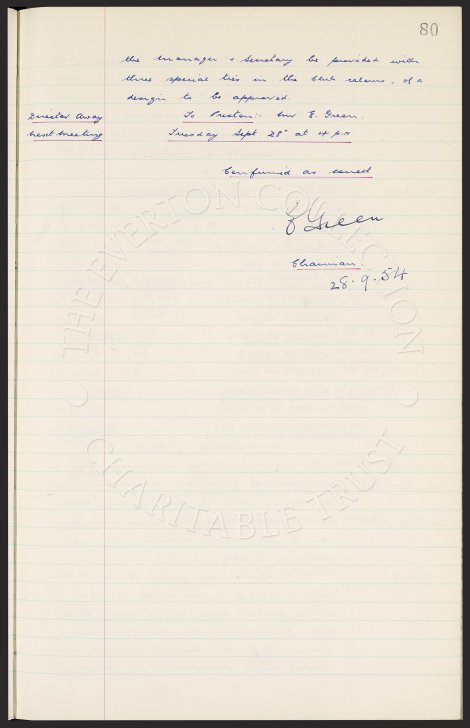 80
the manager & Secretary be provided with
three special ties in the Club colours, of a
design to be approved.
Director Away To Preston:- Mr E. Green.
Next Meeting Tuesday Sept 28" at 4 p.m
Confirmed as correct
E Green
Chairman.
28.9.54
THE EVERTON COLLECTION
CHARITABLE TRUST